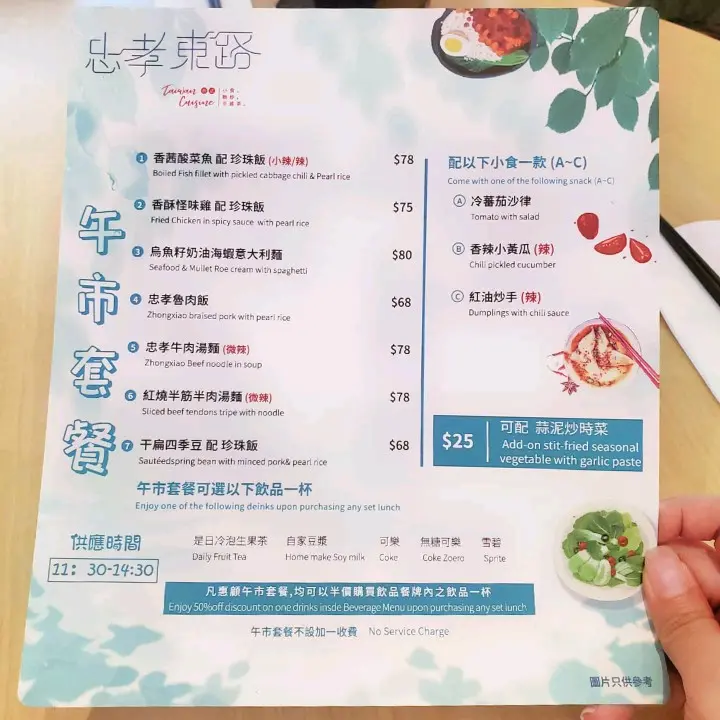 忠孝東路
Taiwan
Cuisine
午市套餐
1 香茜酸菜魚 配 珍珠飯 (小辣/辣) $78
Boiled Fish fillet with pickled cabbage chili & Pearl rice
2 香酥怪味雞 配 珍珠飯 $75
Fried Chicken in spicy sauce with pearl rice
3 烏魚籽奶油海蝦意大利麵 $80
Seafood & Mullet Roe cream with spaghetti
4 忠孝魯肉飯 $68
Zhongxiao braised pork with pearl rice
5 忠孝牛肉湯麵 (微辣) $78
Zhongxiao Beef noodle in soup
6 紅燒半筋半肉湯麵 (微辣) $78
Sliced beef tendons tripe with noodle
7 干扁四季豆 配 珍珠飯 $68
Sautéedspring bean with minced pork& pearl rice
配以下小食一款 (A~C)
Come with one of the following snack (A~C)
A 冷蕃茄沙律
Tomato with salad
B 香辣小黃瓜 (辣)
Chili pickled cucumber
C 紅油炒手 (辣)
Dumplings with chili sauce
$25 可配 蒜泥炒時菜
Add-on stit-fried seasonal
vegetable with garlic paste
午市套餐可選以下飲品一杯
Enjoy one of the following deinks upon purchasing any set lunch
供應時間
11: 30-14:30
是日冷泡生果茶 自家豆漿 可樂 無糖可樂 雪碧
Daily Fruit Tea Home make Soy milk Coke Coke Zoero Sprite
凡惠顧午市套餐,均可以半價購買飲品餐牌內之飲品一杯
Enjoy 50%off discount on one drinks insde Beverage Menu upon purchasing any set lunch
午市套餐不設加一收費 No Service Charge
圖片只供參考